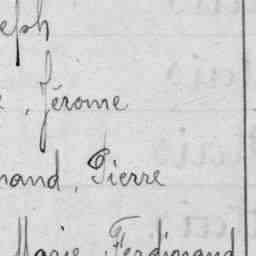 eph
, Jérome
nand, Pierre
Marie Ferdinand